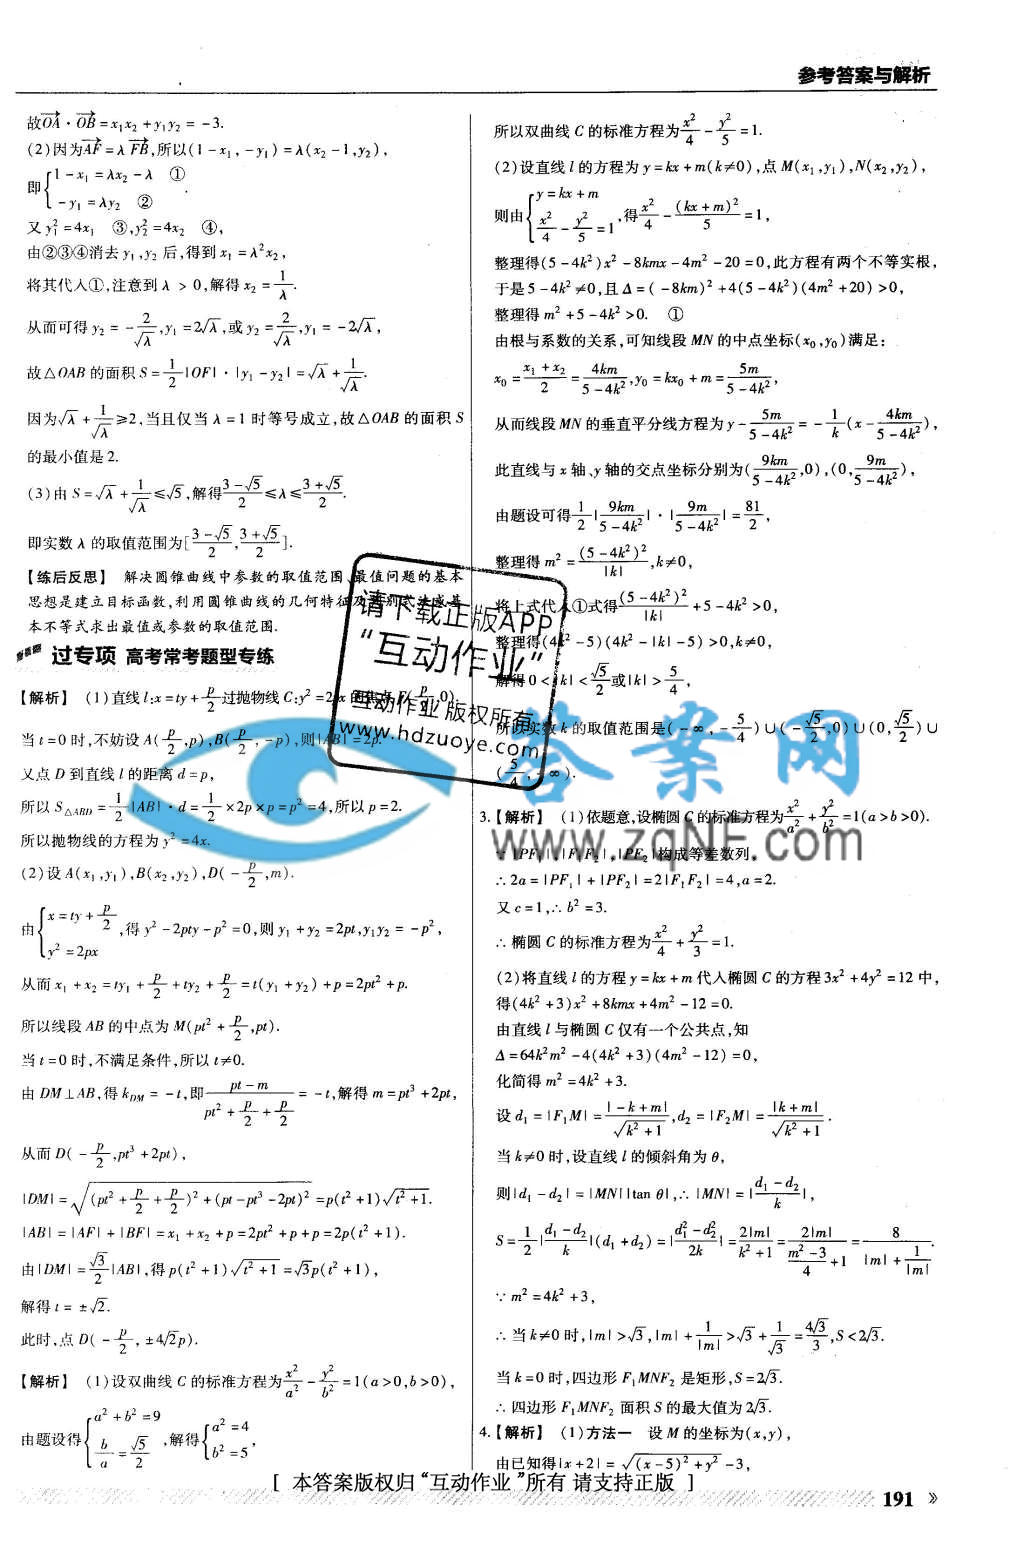 参考答案与解析
故OA·OB=x₁x₂+y₁y₂=-3.
(2)因为AF=λFB,所以(1-x₁,-y₁)=λ(x₂-1,y₂),
即{1-x₁=λx₂-λ ①
-y₁=λy₂ ②.
又y₁²=4x₁ ③,y₂²=4x₂ ④,
由②③④消去y₁,y₂后,得到x₁=λ²x₂,
将其代入①,注意到λ>0,解得x₂=1/λ.
从而可得y₂=-2/√λ,y₁=2√λ,或y₂=2/√λ,y₁=-2√λ,
故△OAB的面积S=1/2|OF|·|y₁-y₂|=√λ+1/√λ.
因为√λ+1/√λ≥2,当且仅当λ=1时等号成立,故△OAB的面积S
的最小值是2.
(3)由S=√λ+1/√λ≤√5,解得(3-√5)/2≤λ≤(3+√5)/2.
即实数λ的取值范围为[(3-√5)/2,(3+√5)/2].
【练后反思】 解决圆锥曲线中参数的取值范围、最值问题的基本
思想是建立目标函数,利用圆锥曲线的几何特征及
本不等式求出最值或参数的取值范围.
过专项 高考常考题型专练
【解析】 (1)直线l:x=ty+p/2过抛物线C:y²=2px的焦点F(p/2,0).
当t=0时,不妨设A(p/2,p),B(p/2,-p),则|AB|=2p.
又点D到直线l的距离d=p,
所以S△ABD=1/2|AB|·d=1/2×2p×p=p²=4,所以p=2.
所以抛物线的方程为y²=4x.
(2)设A(x₁,y₁),B(x₂,y₂),D(-p/2,m).
由{x=ty+p/2
y²=2px,得y²-2pty-p²=0,则y₁+y₂=2pt,y₁y₂=-p²,
从而x₁+x₂=ty₁+p/2+ty₂+p/2=t(y₁+y₂)+p=2pt²+p.
所以线段AB的中点为M(pt²+p/2,pt).
当t=0时,不满足条件,所以t≠0.
由DM⊥AB,得k_DM=-t,即(pt-m)/(pt²+p/2+p/2)=-t,解得m=pt³+2pt,
从而D(-p/2,pt³+2pt),
|DM|=√((pt²+p/2+p/2)²+(pt-pt³-2pt)²)=p(t²+1)√(t²+1).
|AB|=|AF|+|BF|=x₁+x₂+p=2pt²+p+p=2p(t²+1).
由|DM|=√3/2|AB|,得p(t²+1)√(t²+1)=√3p(t²+1),
解得t=±√2.
此时,点D(-p/2,±4√2p).
【解析】 (1)设双曲线C的标准方程为x²/a²-y²/b²=1(a>0,b>0),
由题设得{a²+b²=9
b/a=√5/2,解得{a²=4
b²=5,
所以双曲线C的标准方程为x²/4-y²/5=1.
(2)设直线l的方程为y=kx+m(k≠0),点M(x₁,y₁),N(x₂,y₂),
则由{y=kx+m
x²/4-y²/5=1,得x²/4-(kx+m)²/5=1,
整理得(5-4k²)x²-8kmx-4m²-20=0,此方程有两个不等实根,
于是5-4k²≠0,且Δ=(-8km)²+4(5-4k²)(4m²+20)>0,
整理得m²+5-4k²>0. ①
由根与系数的关系,可知线段MN的中点坐标(x₀,y₀)满足:
x₀=(x₁+x₂)/2=4km/(5-4k²),y₀=kx₀+m=5m/(5-4k²),
从而线段MN的垂直平分线方程为y-5m/(5-4k²)=-1/k(x-4km/(5-4k²)),
此直线与x轴、y轴的交点坐标分别为(9km/(5-4k²),0),(0,9m/(5-4k²)),
由题设可得1/2|9km/(5-4k²)|·|9m/(5-4k²)|=81/2,
整理得m²=(5-4k²)²/|k|,k≠0,
将上式代入①式得(5-4k²)²/|k|+5-4k²>0,
整理得(4k²-5)(4k²-|k|-5)>0,k≠0,
解得0<|k|<√5/2或|k|>5/4,
所以实数k的取值范围是(-∞,-5/4)∪(-√5/2,0)∪(0,√5/2)∪
(5/4,+∞).
3.【解析】 (1)依题意,设椭圆C的标准方程为x²/a²+y²/b²=1(a>b>0).
∵|PF₁|,|F₁F₂|,|PF₂|构成等差数列,
∴2a=|PF₁|+|PF₂|=2|F₁F₂|=4,a=2.
又c=1,∴b²=3.
∴椭圆C的标准方程为x²/4+y²/3=1.
(2)将直线l的方程y=kx+m代入椭圆C的方程3x²+4y²=12中,
得(4k²+3)x²+8kmx+4m²-12=0.
由直线l与椭圆C仅有一个公共点,知
Δ=64k²m²-4(4k²+3)(4m²-12)=0,
化简得m²=4k²+3.
设d₁=|F₁M|=|-k+m|/√(k²+1),d₂=|F₂M|=|k+m|/√(k²+1).
当k≠0时,设直线l的倾斜角为θ,
则|d₁-d₂|=|MN||tan θ|,∴|MN|=|(d₁-d₂)/k|,
S=1/2|(d₁-d₂)/k|(d₁+d₂)=|(d₁²-d₂²)/2k|=2|m|/(k²+1)=2|m|/((m²-3)/4+1)=8/(|m|+1/|m|).
∵m²=4k²+3,
∴当k≠0时,|m|>√3,|m|+1/|m|>√3+1/√3=4√3/3,S<2√3.
当k=0时,四边形F₁MNF₂是矩形,S=2√3.
∴四边形F₁MNF₂面积S的最大值为2√3.
4.【解析】 (1)方法一 设M的坐标为(x,y),
由已知得|x+2|=√((x-5)²+y²)-3,
请下载正版APP
“互动作业”
互动作业 版权所有
www.hdzuoye.com
答案网
www.zqNF.com
[ 本答案版权归“互动作业”所有 请支持正版 ]
191